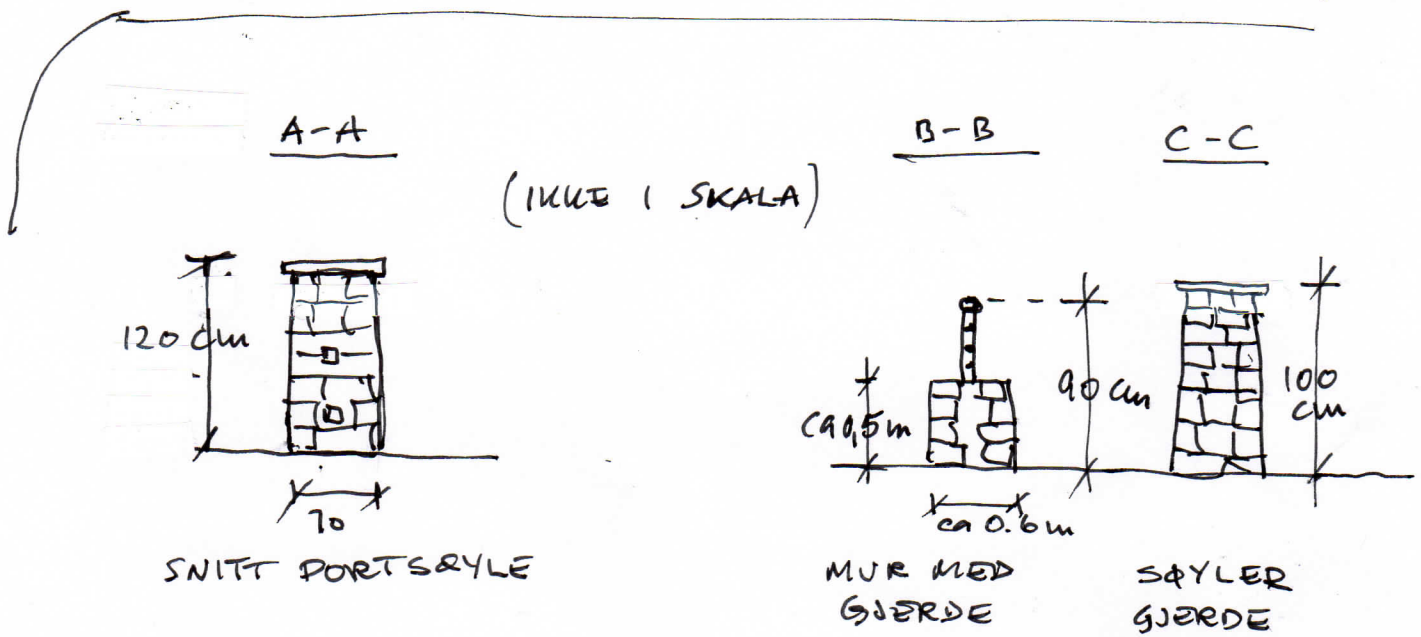 A-A
B-B
C-C
(IKKE I SKALA)
120 cm
70
SNITT PORTSØYLE
ca 0,5 m
90 cm
ca 0.6 m
MUR MED
GJERDE
100
cm
SØYLER
GJERDE